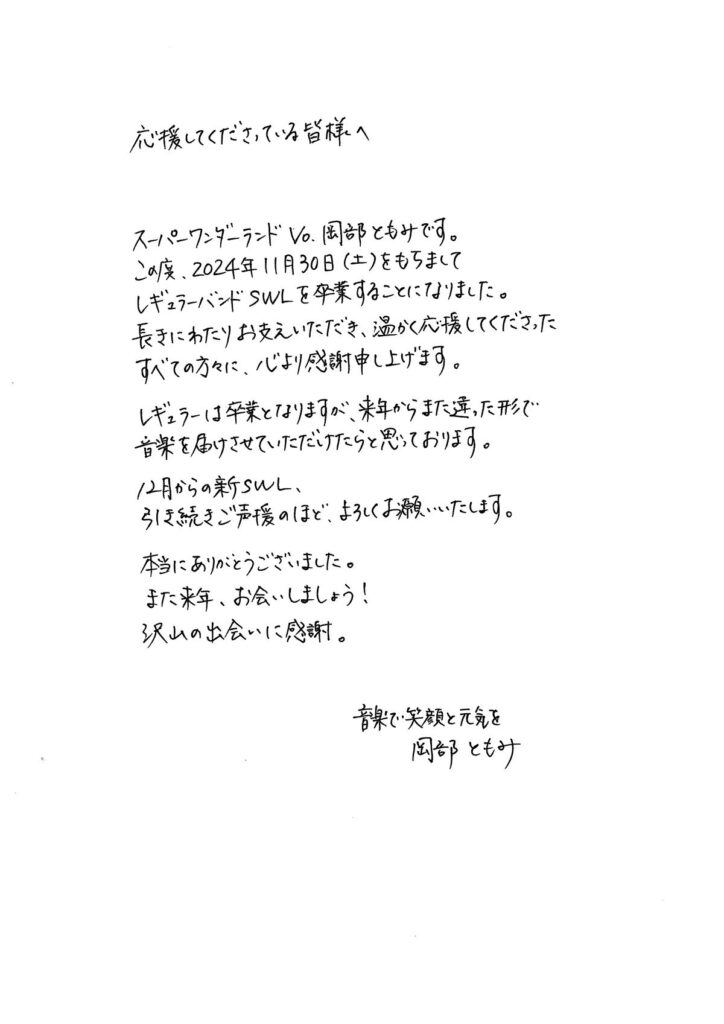 応援してくださっている皆様へ
スーパーワンダーランド Vo. 岡部ともみです。
この度、2024年11月30日(土)をもちまして
レギュラーバンドSWLを卒業することになりました。
長きにわたりお支えいただき、温かく応援してくださった
すべての方々に、心より感謝申し上げます。
レギュラーは卒業となりますが、来年からまた違った形で
音楽を届けさせていただけたらと思っております。
12月からの新SWL、
引き続きご声援のほど、よろしくお願いいたします。
本当にありがとうございました。
また来年、お会いしましょう!
沢山の出会いに感謝。
音楽で笑顔と元気を
岡部 ともみ